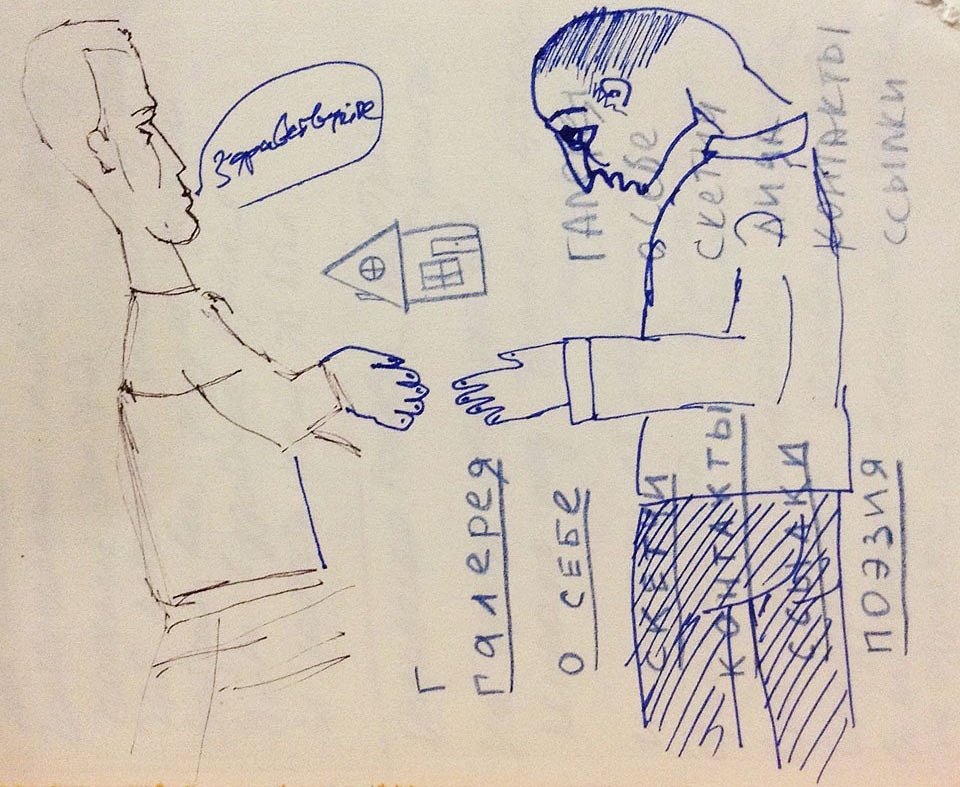 Здравствуйте
о себе
скетчи
контакты
ссылки
Г
Галерея
О СЕБЕ
СКЕТЧИ
КОНТАКТЫ
ССЫЛКИ
ПОЭЗИЯ